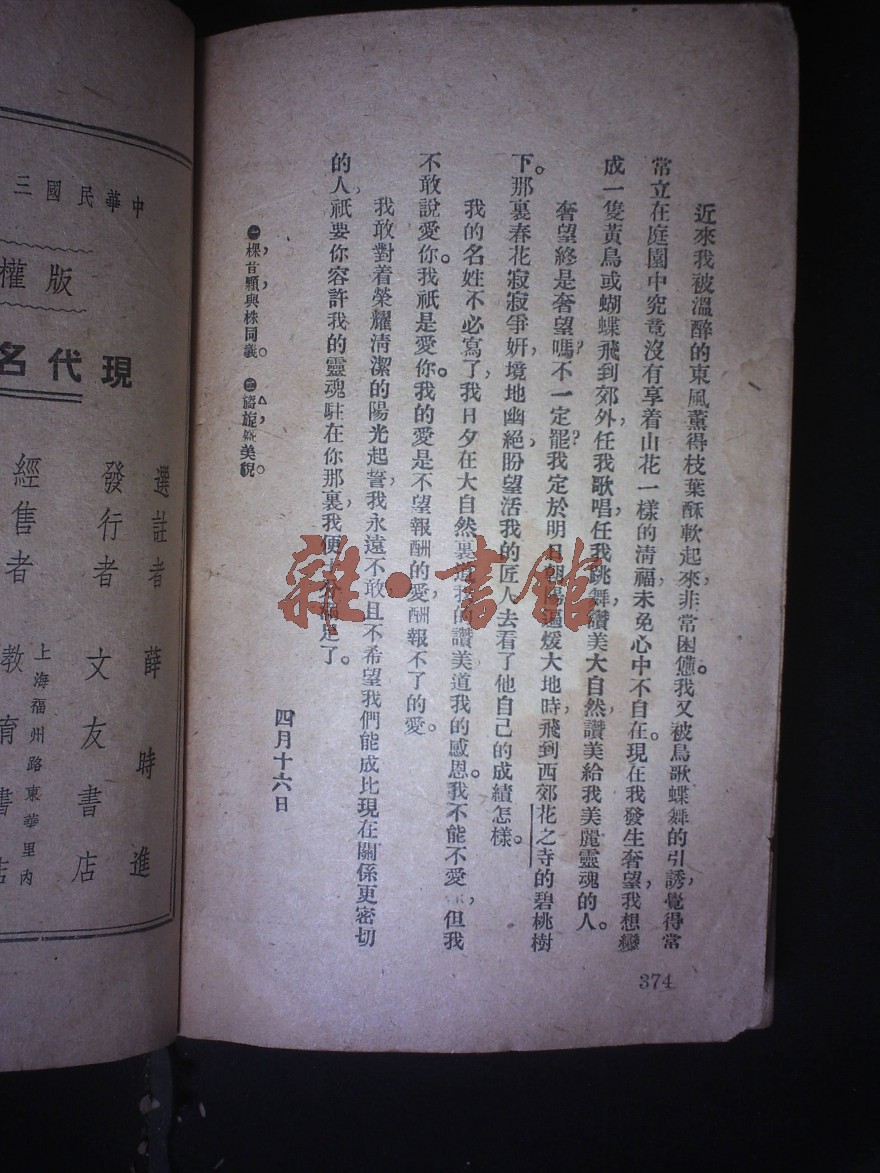 近來我被溫醉的東風薰得枝葉酥軟起來，非常困憊。我又被鳥歌蝶舞的引誘，覺得常
常立在庭園中究竟沒有享着山花一樣的清福，未免心中不自在。現在我發生奢望，我想變
成一隻黃鳥或蝴蝶飛到郊外，任我歌唱任我跳舞，讚美大自然，讚美給我美麗靈魂的人。
奢望終是奢望嗎？不一定罷？我定於明日朝陽遍煖大地時，飛到西郊花之寺的碧桃樹
下。那裏春花寂寂爭妍，境地幽絕，盼望活我的匠人去看了他自己的成績怎樣。
我的名姓不必寫了，我日夕在大自然裏道我的讚美，道我的感恩。我不能不愛，但我
不敢說愛你。我祇是愛你。我的愛是不望報酬的愛，酬報不了的愛。
我敢對着榮耀清潔的陽光起誓，我永遠不敢且不希望我們能成比現在關係更密切
的人，祇要你容許我的靈魂駐在你那裏，我便滿足了。
㊀棵，音顆，與株同義。㊁旖旎，美貌。
四月十六日
374
中華民國三
版權
現代名
選註者 薛時進
發行者 文友書店
上海福州路東華里內
經售者 教育書店
雜·書館